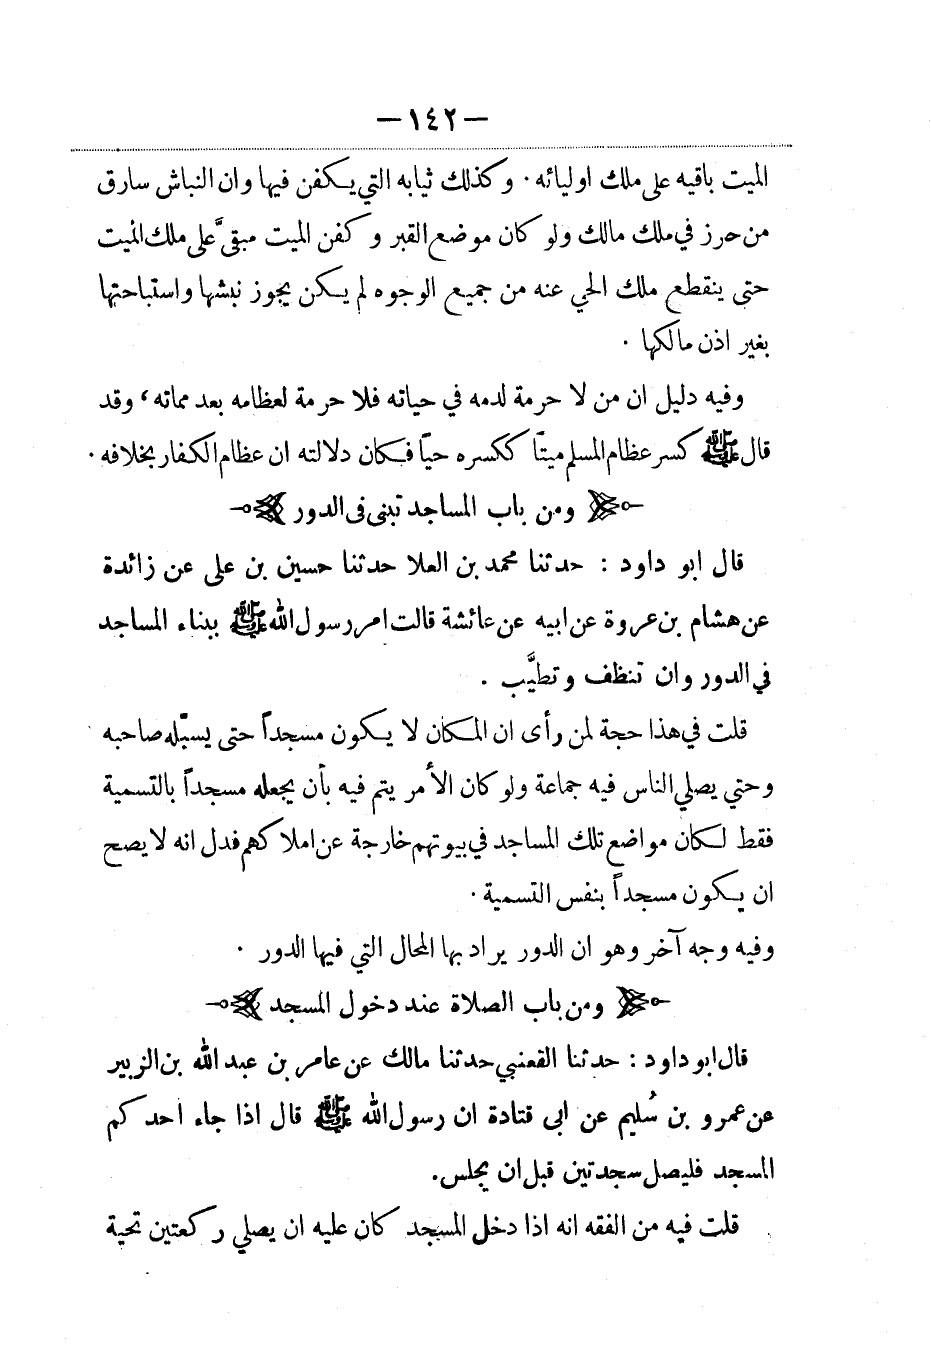 — ١٤٢ —
الميت باقيه على ملك اوليائه . وكذلك ثيابه التي يكفن فيها وان النباش سارق
من حرز في ملك مالك ولو كان موضع القبر وكفن الميت مبقىً على ملك الميت
حتى ينقطع ملك الحي عنه من جميع الوجوه لم يكن يجوز نبشها واستباحتها
بغير اذن مالكها .
وفيه دليل ان من لا حرمة لدمه في حياته فلا حرمة لعظامه بعد مماته ، وقد
قال ﷺ كسر عظام المسلم ميتاً ككسره حياً فكان دلالته ان عظام الكفار بخلافه .
ومن باب المساجد تبنى فى الدور
قال ابو داود : حدثنا محمد بن العلا حدثنا حسين بن على عن زائدة
عن هشام بن عروة عن ابيه عن عائشة قالت امر رسول الله ﷺ ببناء المساجد
في الدور وان تنظف وتطيَّب .
قلت في هذا حجة لمن رأى ان المكان لا يكون مسجداً حتى يسبّله صاحبه
وحتي يصلي الناس فيه جماعة ولو كان الأمر يتم فيه بأن يجعله مسجداً بالتسمية
فقط لكان مواضع تلك المساجد في بيوتهم خارجة عن املاكهم فدل انه لا يصح
ان يكون مسجداً بنفس التسمية .
وفيه وجه آخر وهو ان الدور يراد بها المحال التي فيها الدور .
ومن باب الصلاة عند دخول المسجد
قال ابو داود : حدثنا القعنبي حدثنا مالك عن عامر بن عبد الله بن الزبير
عن عمرو بن سُليم عن ابى قتادة ان رسول الله ﷺ قال اذا جاء احدكم
المسجد فليصل سجدتين قبل ان يجلس.
قلت فيه من الفقه انه اذا دخل المسجد كان عليه ان يصلي ركعتين تحية